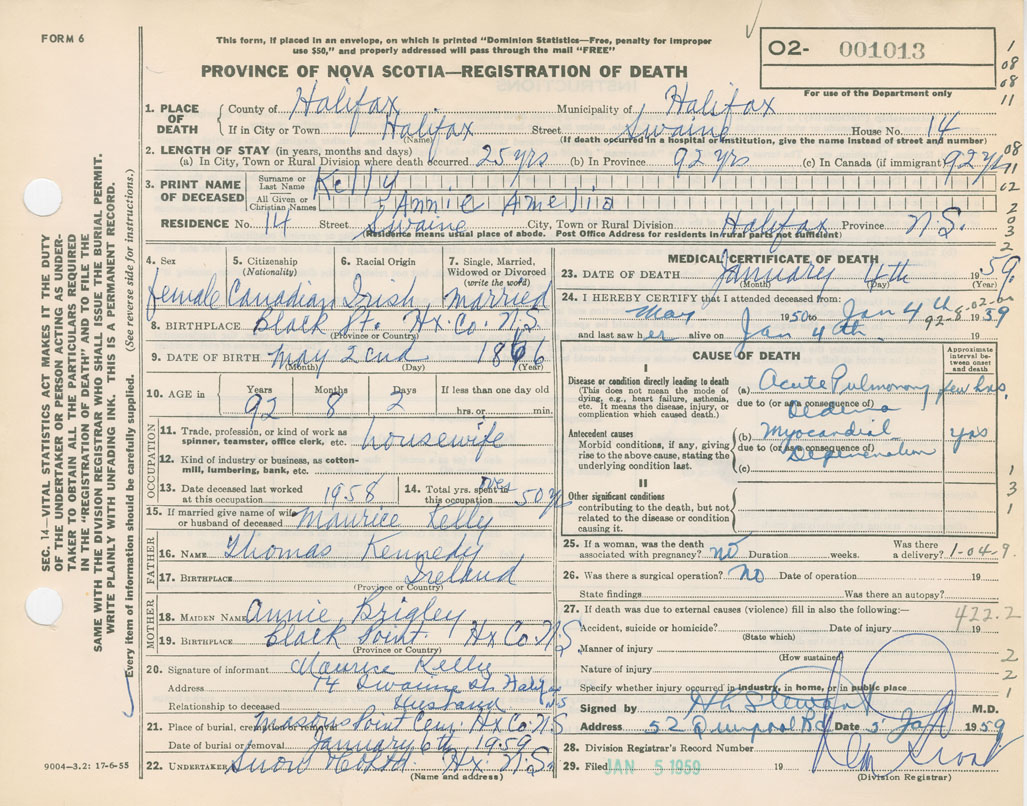 FORM 6
This form, if placed in an envelope, on which is printed "Dominion Statistics—Free, penalty for improper
use $50," and properly addressed will pass through the mail "FREE"
O2- 001013
For use of the Department only
PROVINCE OF NOVA SCOTIA—REGISTRATION OF DEATH
1. PLACE OF DEATH
County of Halifax Municipality of Halifax
If in City or Town Halifax Street Swaine House No. 14
(Name) (If death occurred in a hospital or institution, give the name instead of street and number)
2. LENGTH OF STAY (in years, months and days)
(a) In City, Town or Rural Division where death occurred 25 yrs (b) In Province 92 yrs (c) In Canada (if immigrant) 92 yrs
3. PRINT NAME OF DECEASED
Surname or Last Name Kelly
All Given or Christian Names Annie Amelia
RESIDENCE No. 14 Street Swaine City, Town or Rural Division Halifax Province N.S.
(Residence means usual place of abode. Post Office Address for residents in rural parts not sufficient)
4. Sex female
5. Citizenship (Nationality) Canadian
6. Racial Origin Irish
7. Single, Married, Widowed or Divorced (write the word) Married
8. BIRTHPLACE Black Pt. Hx. Co. N.S.
(Province or Country)
9. DATE OF BIRTH May 2cnd 1866
(Month) (Day) (Year)
10. AGE in Years 92 Months 8 Days 2 If less than one day old
hrs. or min.
OCCUPATION
11. Trade, profession, or kind of work as spinner, teamster, office clerk, etc. housewife
12. Kind of industry or business, as cotton-mill, lumbering, bank, etc.
13. Date deceased last worked at this occupation 1958
14. Total yrs. spent in this occupation over 50 yrs
15. If married give name of wife or husband of deceased Maurice Kelly
FATHER
16. NAME Thomas Kennedy
17. BIRTHPLACE Ireland
(Province or Country)
MOTHER
18. MAIDEN NAME Annie Brigley
19. BIRTHPLACE Black Point Hx Co. N S
(Province or Country)
20. Signature of informant Maurice Kelly
Address 14 Swaine St. Halifax N S
Relationship to deceased Husband
21. Place of burial, cremation or removal Masons Point Cem. Hx Co. N S
Date of burial or removal January 6th 1959
22. UNDERTAKER Snow Hx. N.S.
(Name and address)
MEDICAL CERTIFICATE OF DEATH
23. DATE OF DEATH January 4th 1959.
(Month) (Day) (Year)
24. I HEREBY CERTIFY that I attended deceased from:
May 1950 to Jan 4th 1959
92-8-02-00
and last saw her alive on Jan 4th. 19
CAUSE OF DEATH
Approximate interval between onset and death
I
Disease or condition directly leading to death
(This does not mean the mode of dying, e.g., heart failure, asthenia, etc. It means the disease, injury, or complication which caused death.)
(a) Acute Pulmonary Oedema few hrs.
due to (or as a consequence of)
Antecedent causes
Morbid conditions, if any, giving rise to the above cause, stating the underlying condition last.
(b) Myocardial Degeneration yrs
due to (or as a consequence of)
(c)
II
Other significant conditions
contributing to the death, but not related to the disease or condition causing it.
25. If a woman, was the death associated with pregnancy? No Duration weeks. Was there a delivery? 1-04-9.
26. Was there a surgical operation? No Date of operation 19
State findings Was there an autopsy?
27. If death was due to external causes (violence) fill in also the following:— 422.2
Accident, suicide or homicide? Date of injury 19
(State which)
Manner of injury
(How sustained)
Nature of injury
Specify whether injury occurred in industry, in home, or in public place
Signed by Stewart M.D.
Address 52 Liverpool Rd Date 5 Jan 1959
28. Division Registrar's Record Number
29. Filed JAN 5 1959 19
(Division Registrar)
9004—3.2: 17-6-55
SEC. 14—VITAL STATISTICS ACT MAKES IT THE DUTY
OF THE UNDERTAKER OR PERSON ACTING AS UNDER-
TAKER TO OBTAIN ALL THE PARTICULARS REQUIRED
IN THE "REGISTRATION OF DEATH" AND TO FILE THE
SAME WITH THE DIVISION REGISTRAR WHO SHALL ISSUE THE BURIAL PERMIT.
WRITE PLAINLY WITH UNFADING INK. THIS IS A PERMANENT RECORD.
Every item of information should be carefully supplied. (See reverse side for instructions.)
1
08
08
11
08
11
02
2
03
2
1
3
1
2
2
1